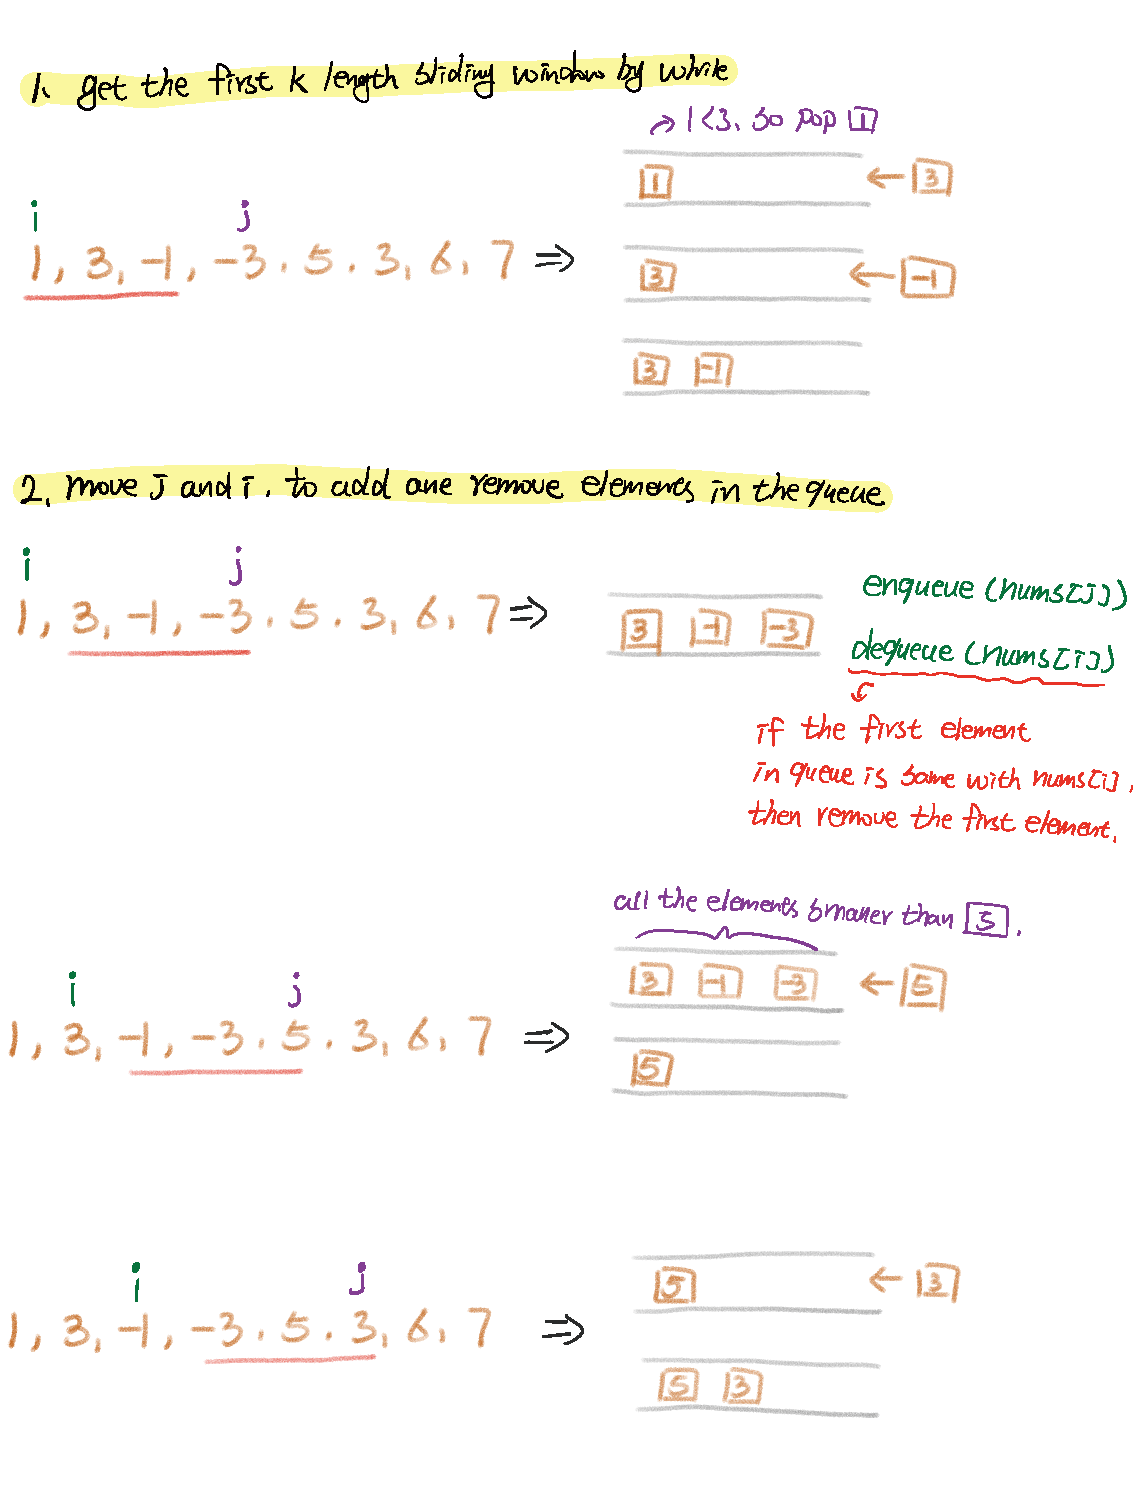 1. get the first k length sliding window by while
1<3. so pop 1
1 ← 3
i j
1, 3, -1, -3. 5. 3, 6, 7 ⇒
3 ← -1
3 -1
2. move j and i. to add one remove elements in the queue
i j
1, 3, -1, -3. 5. 3, 6, 7 ⇒
3 -1 -3
enqueue (nums[j])
dequeue (nums[i])
if the first element
in queue is same with nums[i],
then remove the first element.
all the elements smaller than 5.
3 -1 -3 ← 5
i j
1, 3, -1, -3. 5. 3, 6, 7 ⇒
5
5 ← 3
i j
1, 3, -1, -3. 5. 3, 6, 7 ⇒
5 3